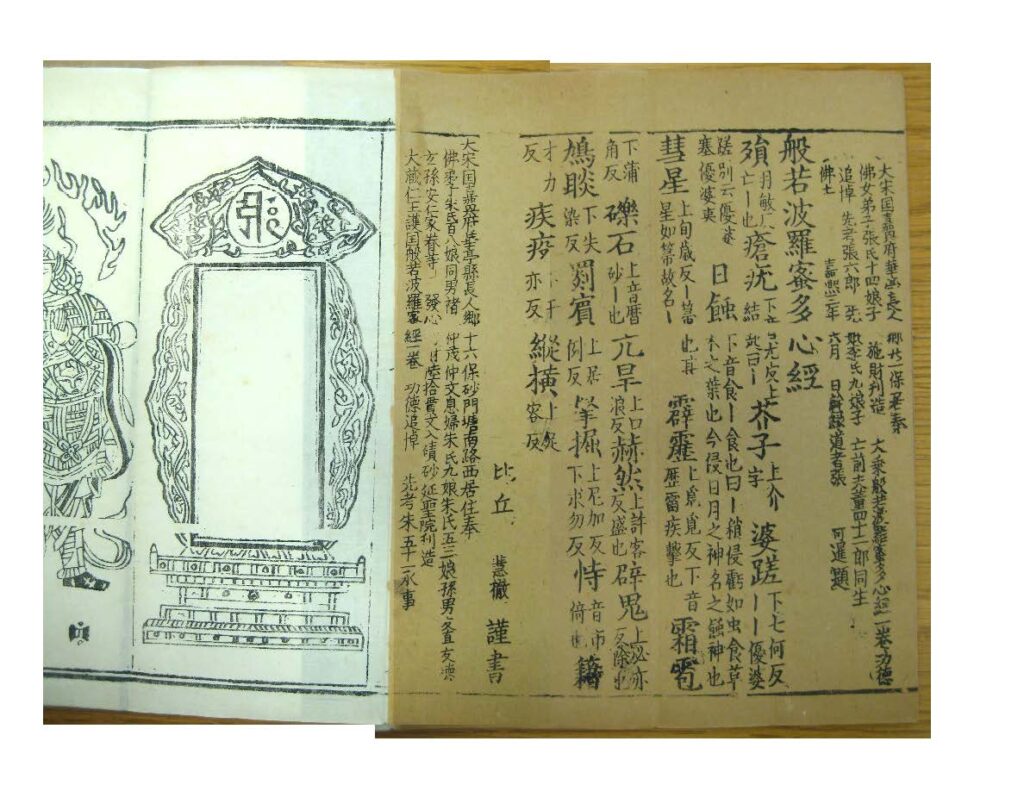 大宋国嘉興府華亭長人鄉 一保居奉
佛女弟子張氏十四娘子 施財刋造 大乘般若波羅蜜多心經一卷功德
追悼 先考張六郎 先妣李氏九娘子 亡前夫董四十二郎同生
佛土 嘉熙三年六月 日幹縁道者張 可暹題
般若波羅蜜多心經
殞 羽敏反亡也 瘡疣 芥子 上介字 婆蹉 下七何反ーー優婆
蹉別云優婆塞優婆夷 日蝕 下音食ー食也曰ー稍侵虧如虫食草木之葉也今侵日月之神名之蝕神也
彗星 上旬歲反ー星如箒故名ー也 霹靂 上覓反下音歷雷疾擊也 霜雹
下蒲角反 礫石 上音曆砂ー也 亢旱 上口浪反 赫然 上許客反盛也 辟鬼 上必亦反除也
鳩睒 下失染反 罽賓 上居例反 拏掘 上尼加反下求勿反 恃 音市倚也 籍
才力反 疾疫 亦反 縱橫 容反
比丘 慧橵 謹書
大宋国嘉興府華亭縣長人鄉十六保砂門塘南路西居住奉
佛弟子朱氏百八娘同男褚仲茂仲文息婦朱氏九娘朱氏五三娘孫男
玄孫安仁家眷等 發心 陸拾貫文入磧砂延聖院刋造
大藏仁王護国般若波羅蜜經一卷 功德追悼 先考朱五十一承事